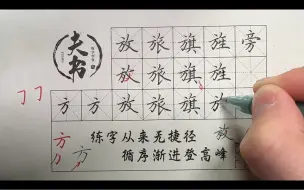 夫书
放 旅 旗 旌 旁
放 旅 旗 旌
方 方 放 旅 旗
练字从来无捷径
循序渐进登高峰
方
放